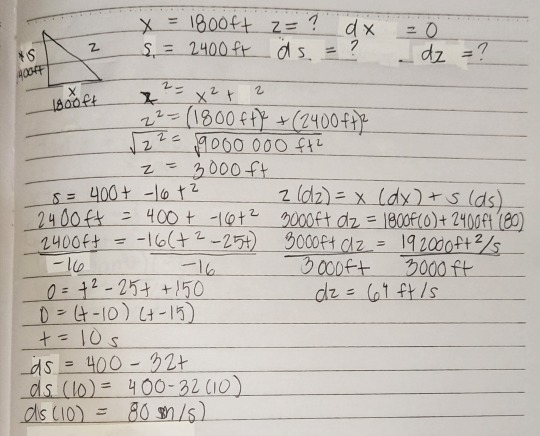 x = 1800ft z = ? dx = 0
s = 2400ft ds = ? dz = ?
s
z
400ft
x
1800ft
z² = x² + ²
z² = (1800ft)² + (2400ft)²
√z² = √9000000ft²
z = 3000ft
s = 400t - 16t²
2400ft = 400t - 16t²
2400ft = -16(t² - 25t)
-16 -16
0 = t² - 25t + 150
0 = (t - 10)(t - 15)
t = 10s
ds = 400 - 32t
ds(10) = 400 - 32(10)
ds(10) = 80 m/s)
z(dz) = x(dx) + s(ds)
3000ft dz = 1800f(0) + 2400ft(80)
3000ft dz = 192000ft²/s
3000ft 3000ft
dz = 64 ft/s